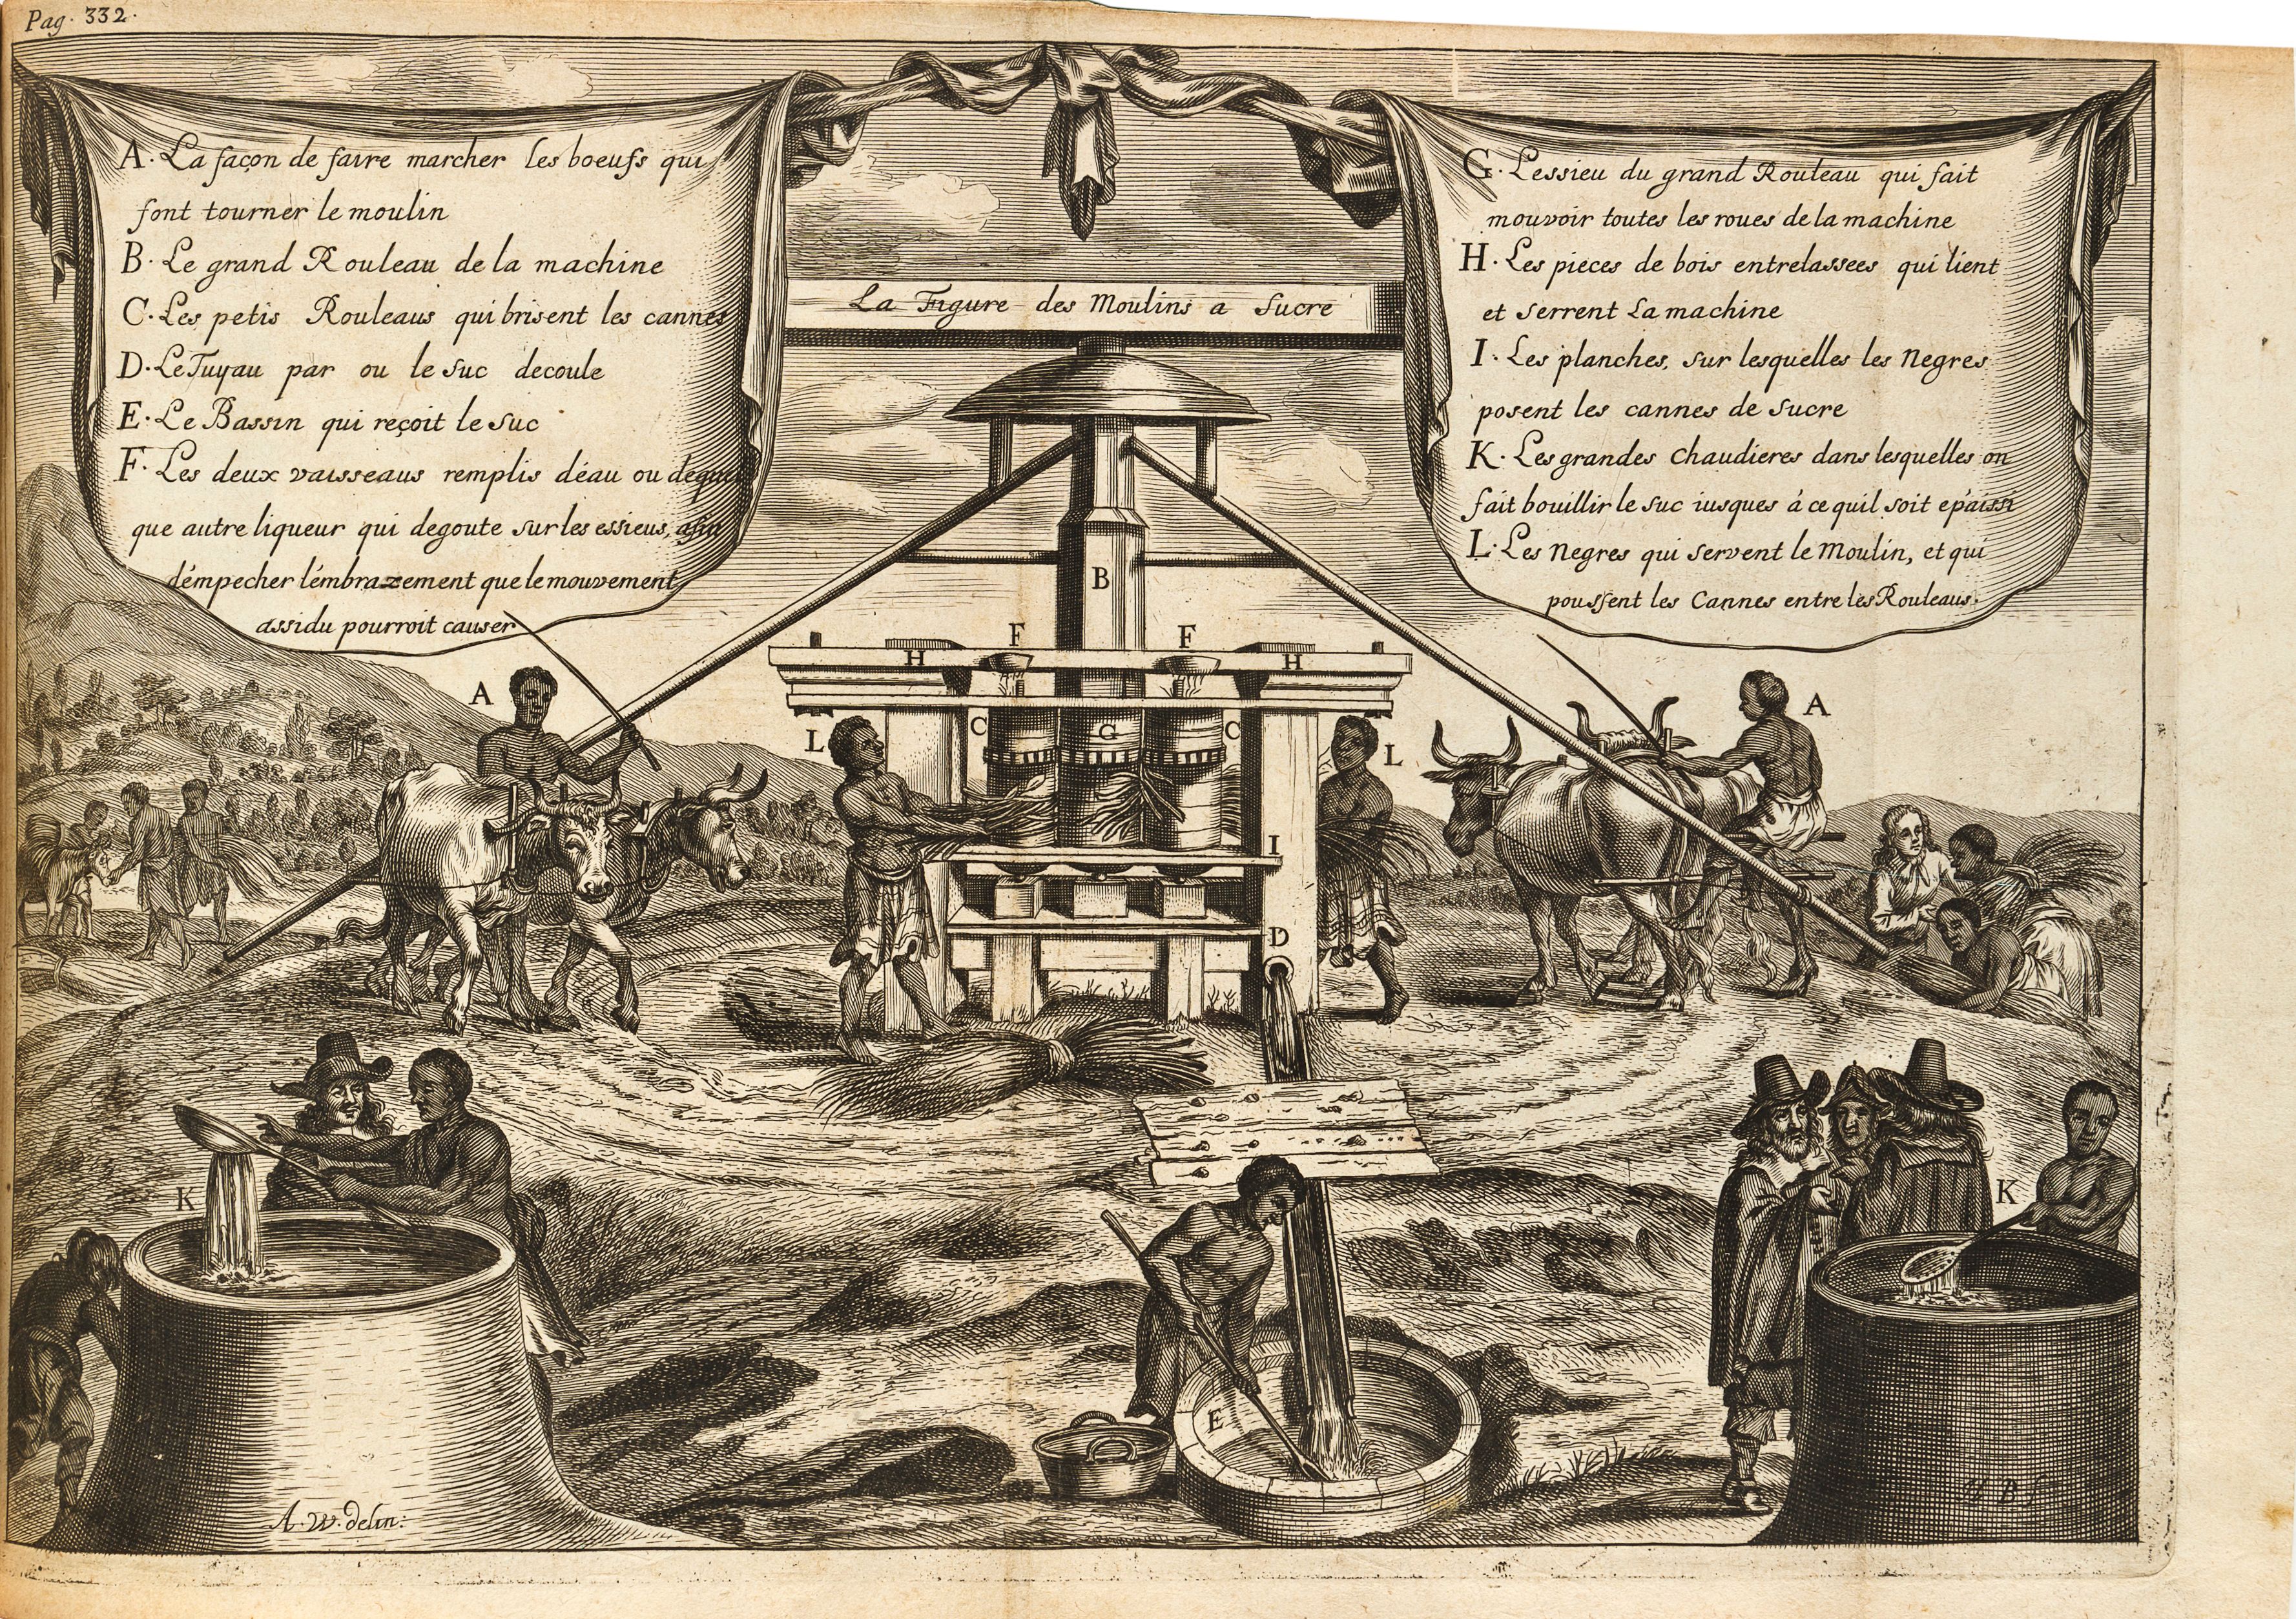 Pag. 332.
A. La façon de faire marcher les boeufs qui
font tourner le moulin
B. Le grand Rouleau de la machine
C. Les petis Rouleaus qui brisent les cannes
D. Le Tuyau par ou le suc decoule
E. Le Bassin qui reçoit le suc
F. Les deux vaisseaus remplis déau ou de
que autre liqueur qui degoute sur les essieus, afin
démpecher lémbrazement que le mouvement
assidu pourroit causer
La Figure des Moulins a Sucre
G. Lessieu du grand Rouleau qui fait
mouvoir toutes les roues de la machine
H. Les pieces de bois entrelassees qui lient
et serrent la machine
I. Les planches, sur lesquelles les Negres
posent les cannes de sucre
K. Les grandes chaudieres dans lesquelles on
fait bouillir le suc iusques à ce quil soit epaissi
L. Les Negres qui servent le Moulin, et qui
poussent les Cannes entre les Rouleaus.
B
F F
H H
A A
C G C
L L
I
D
K K
E
A. W. delin: